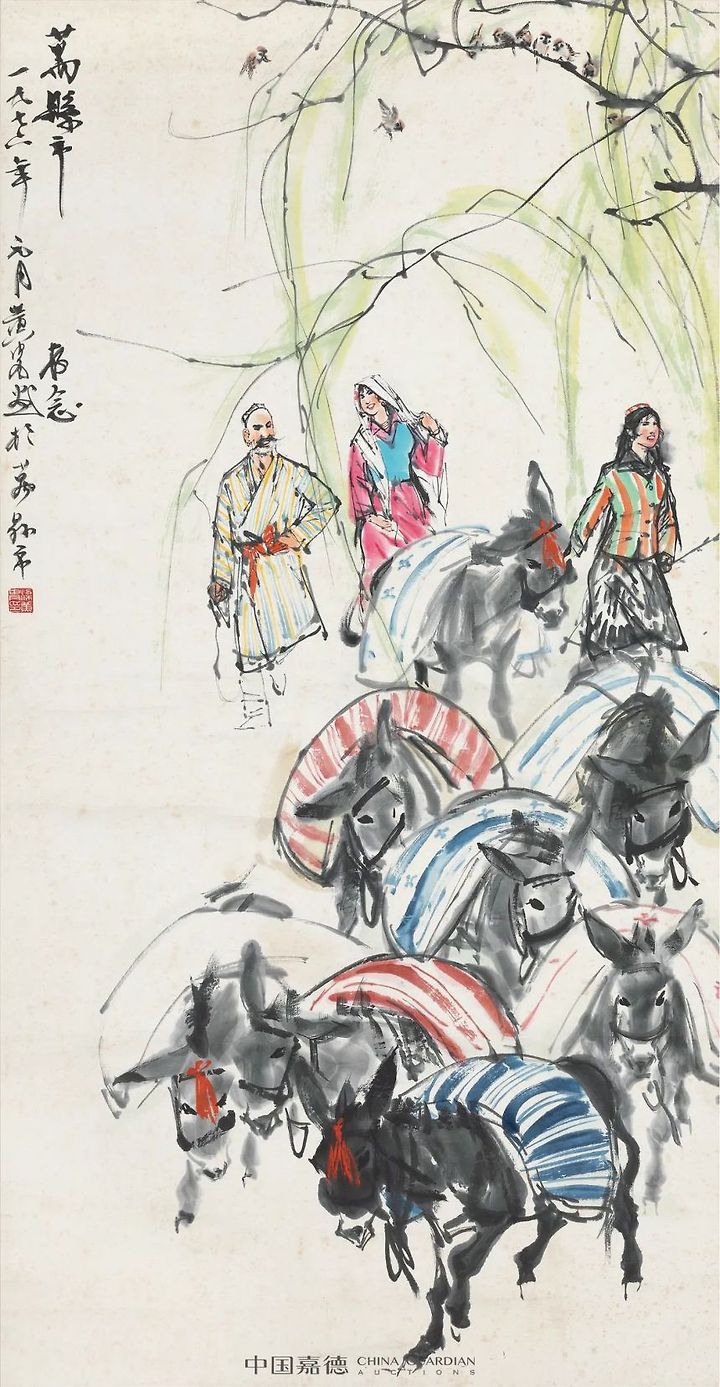 萬縣市 存念
一九七六年元月黄胄於萬縣市
中国嘉德 CHINA GUARDIAN
AUCTIONS